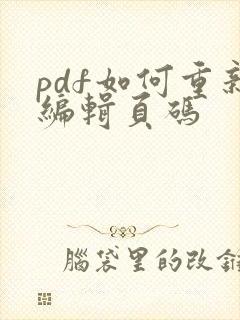 pdf如何重新
編輯頁碼
腦袋里的改錐